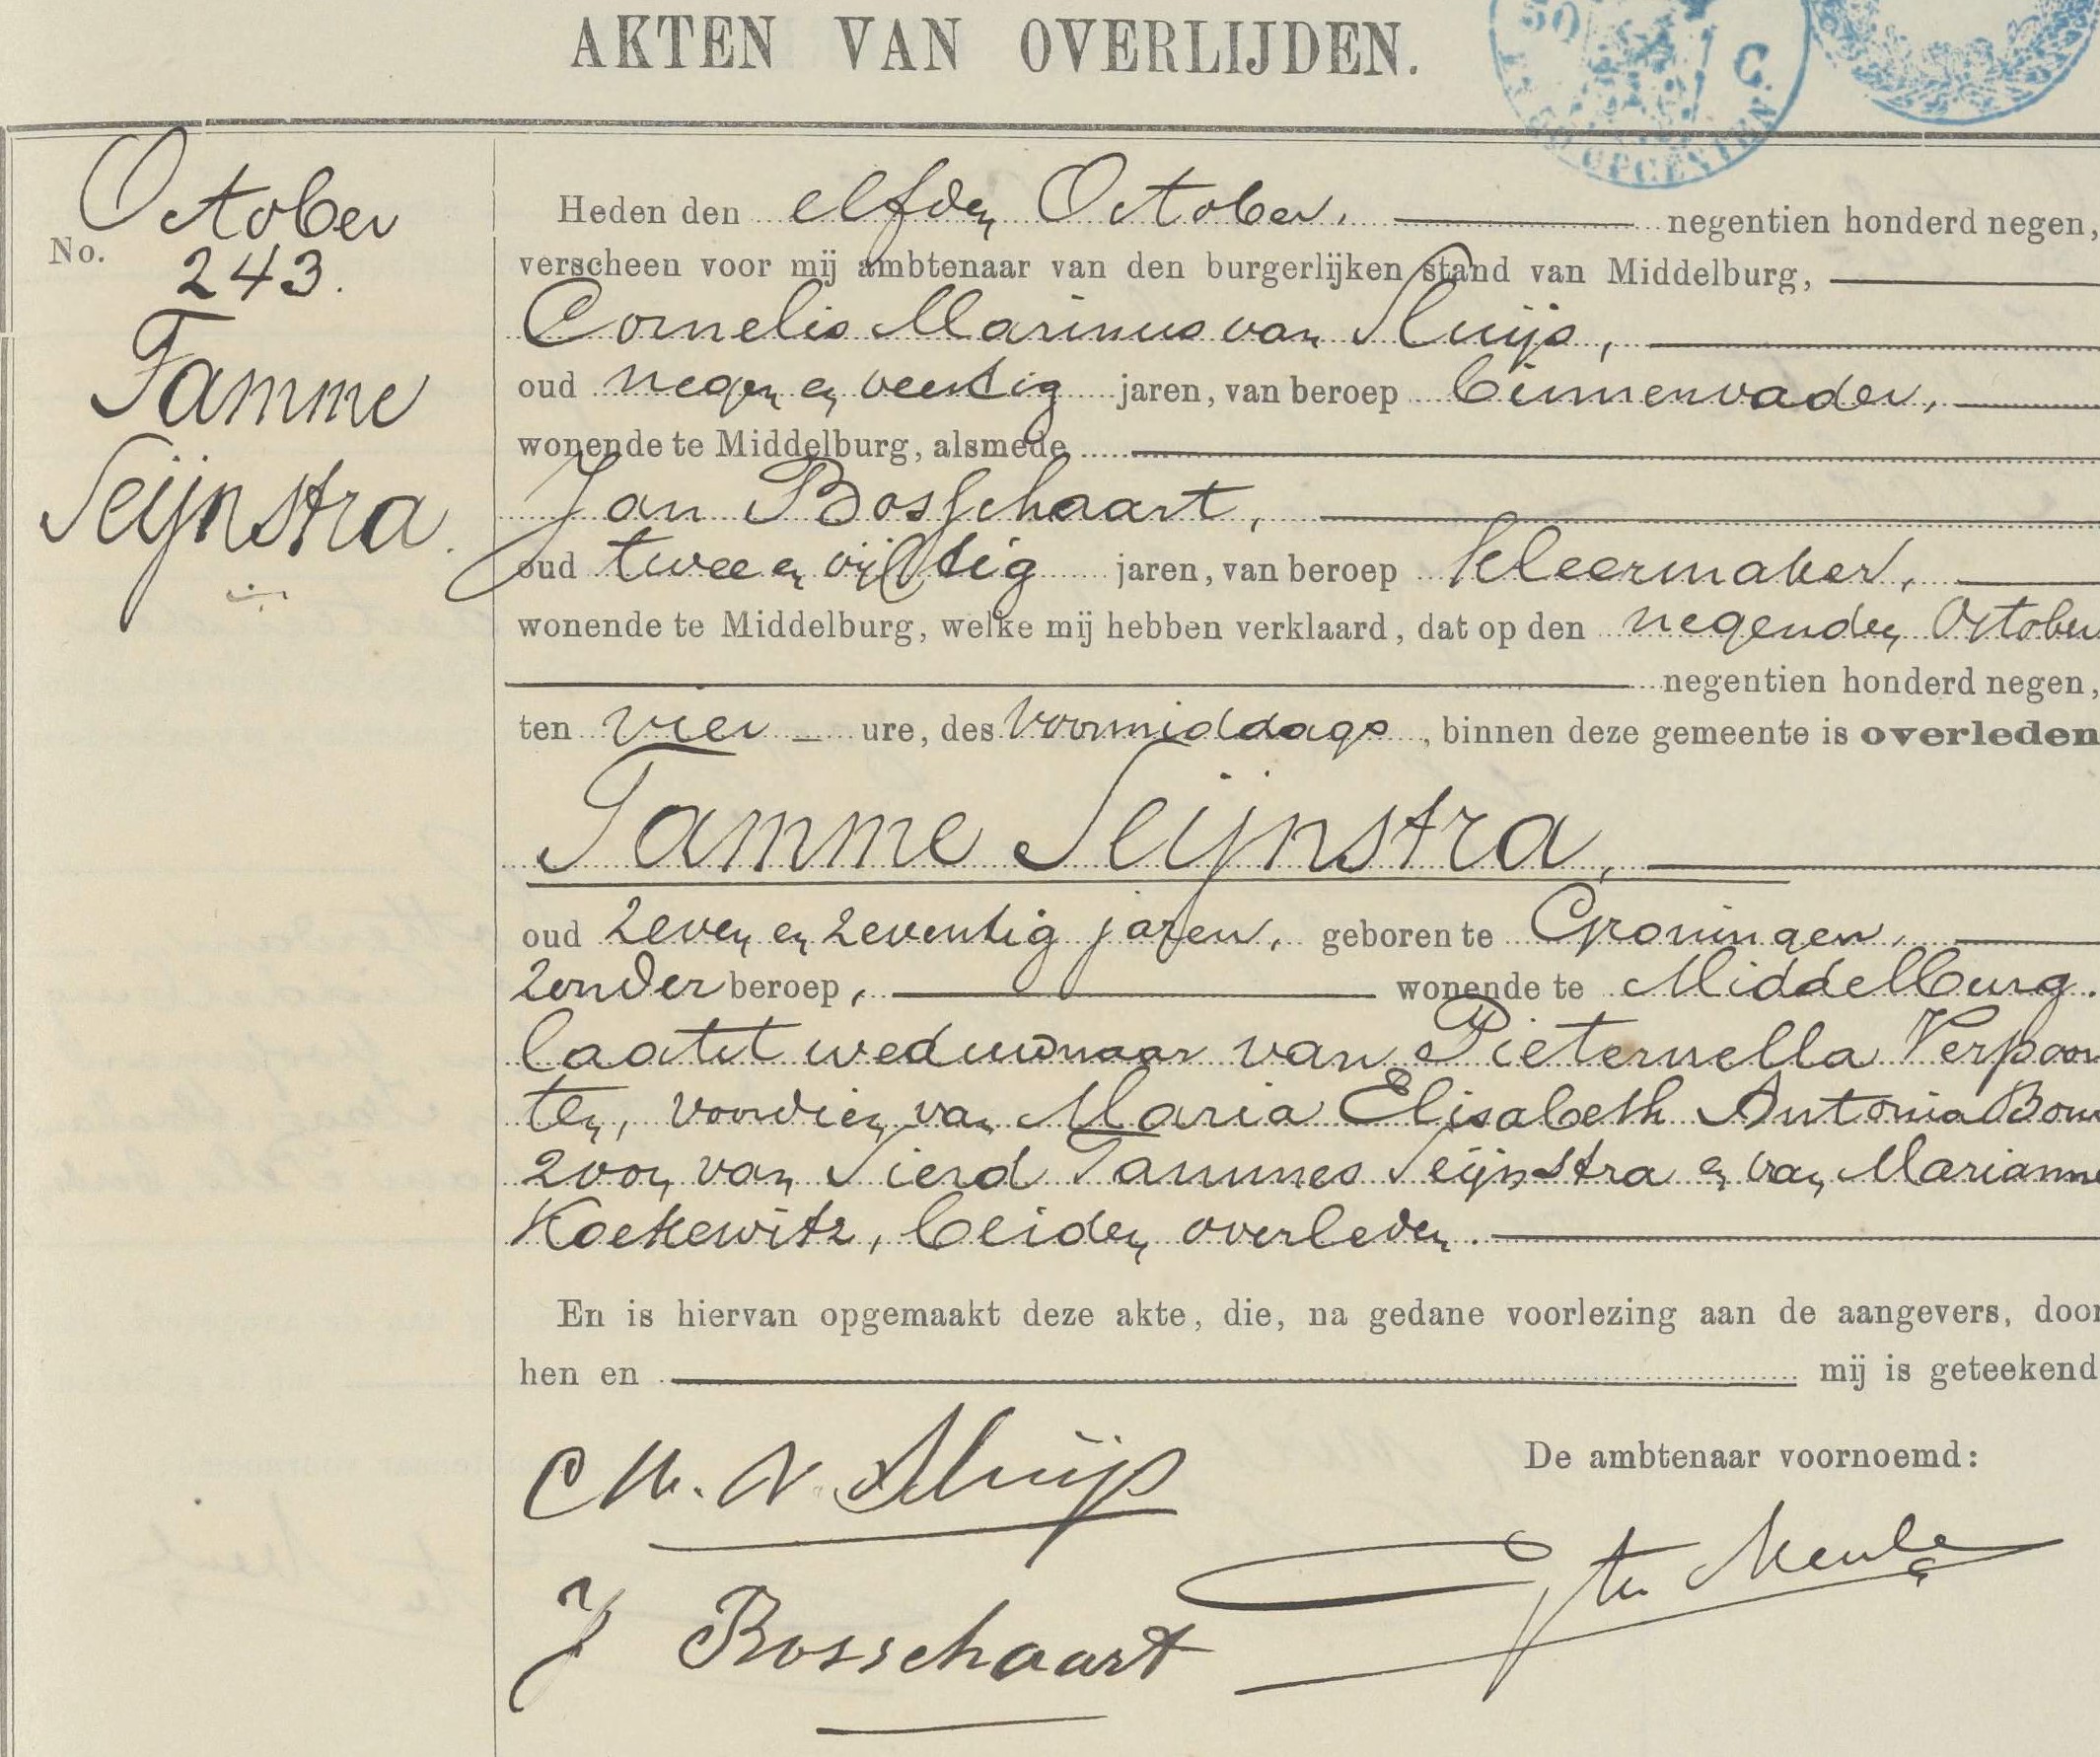 AKTEN VAN OVERLIJDEN.
C.
OPCENTEN
October
No. 243.
Tamme
Seijnstra.
Heden den elfden October. negentien honderd negen,
verscheen voor mij ambtenaar van den burgerlijken stand van Middelburg,
Cornelis Marinus van Sluijs,
oud negen en veertig jaren, van beroep binnenvader,
wonende te Middelburg, alsmede
Jan Bosschaart,
oud twee en vijftig jaren, van beroep kleermaker,
wonende te Middelburg, welke mij hebben verklaard, dat op den negenden October
negentien honderd negen,
ten vier ure, des voormiddags, binnen deze gemeente is overleden
Tamme Seijnstra,
oud zeven en zeventig jaren, geboren te Groningen,
zonder beroep, wonende te Middelburg.
laatst weduwnaar van Pieternella Verpoor
ten, voordien van Maria Elisabeth Antonia
zoon van Sierd Tammes Seijnstra en van Marianne
Koekewitz, beiden overleden.
En is hiervan opgemaakt deze akte, die, na gedane voorlezing aan de aangevers, door
hen en mij is geteekend
De ambtenaar voornoemd:
C M. v. Sluijs
J Bosschaart